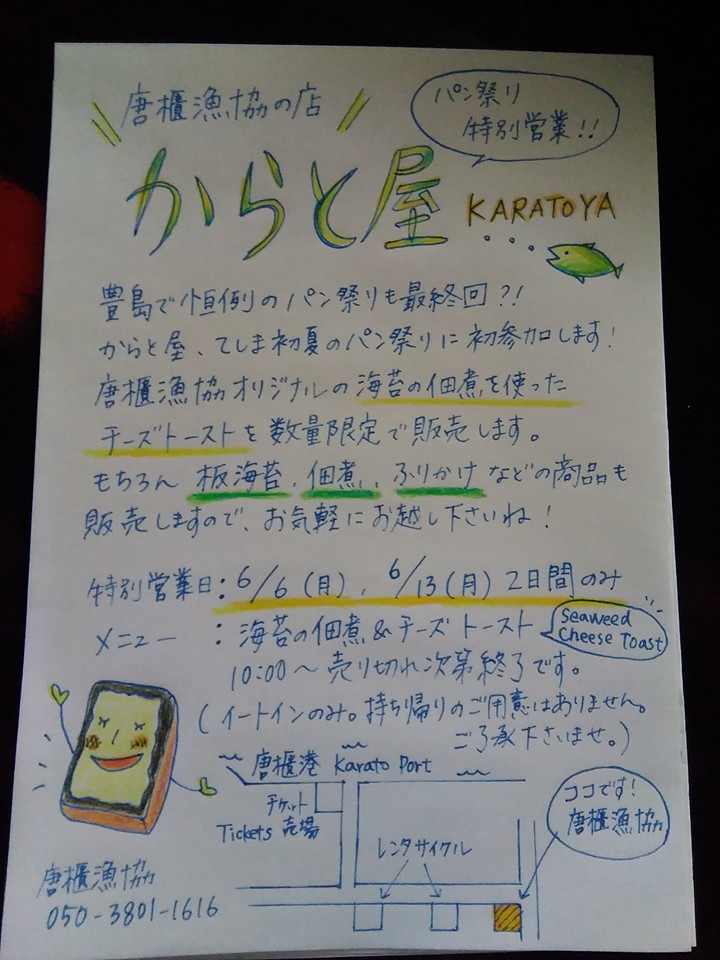 唐櫃漁協の店
パン祭り
特別営業!!
からと屋 KARATOYA
豊島で恒例のパン祭りも最終回?!
からと屋、てしま初夏のパン祭りに初参加します!
唐櫃漁協オリジナルの海苔の佃煮を使った
チーズトーストを数量限定で販売します。
もちろん 板海苔、佃煮、ふりかけなどの商品も
販売しますので、お気軽にお越し下さいね!
特別営業日:6/6(月)、6/13(月)2日間のみ
メニュー :海苔の佃煮&チーズトースト
Seaweed
Cheese Toast
10:00〜売り切れ次第終了です。
(イートインのみ。持ち帰りのご用意はありません。
ご了承下さいませ。)
唐櫃港 Karato Port
チケット
Tickets 売場
レンタサイクル
ココです!
唐櫃漁協
唐櫃漁協
050-3801-1616